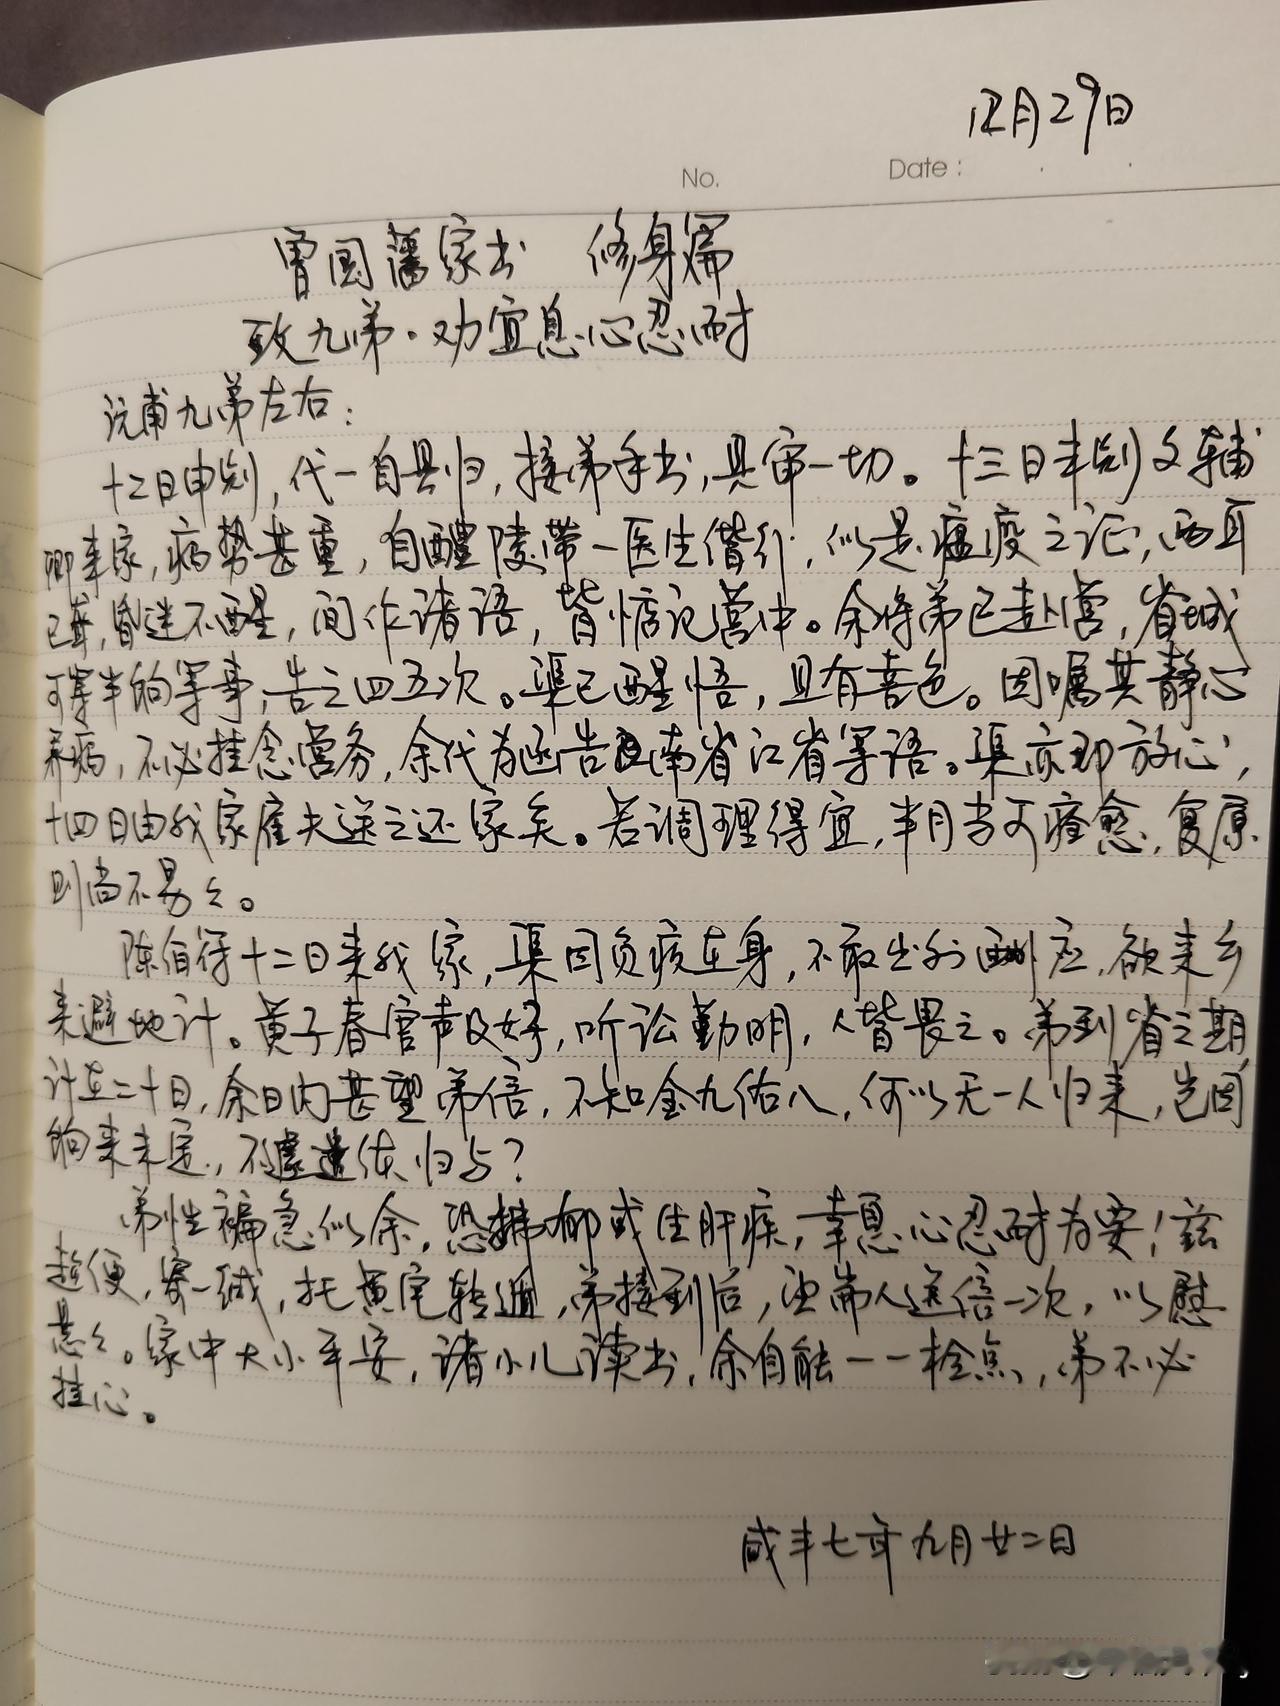 12月29日
No.
Date:
曾国藩家书 修身篇
致九弟·劝宜息心忍耐
沅甫九弟左右：
十二日申刻，代一自县归，接弟手书，具审一切。十三日未刻文辅
卿来家，病势甚重，自醴陵带一医生偕行，似是瘟疫之证，两耳
已聋，昏迷不醒，间作诸语，皆惦记营中。余将弟已赴营，省城
可筹半饷等事，告之四五次。渠已醒悟，且有喜色。因嘱其静心
养病，不必挂念营务，余代为函告南省江省等语。渠亦即放心，
十四日由我家雇夫送之还家矣。若调理得宜，半月当可痊愈，复原
则尚不易々。
陈伯符十二日来我家，渠因负疚在身，不敢出外酬应，欲来乡
来避地计。黄子春官声极好，听讼勤明，人皆畏之。弟到省之期
计在二十日，余日内甚望弟信，不知金九佑八，何以无一人归来，岂因
饷来未定，不遽遣使归与？
弟性褊急似余，恐拂郁或生肝疾，幸息心忍耐为要！兹
趁便，寄一缄，托黄宅转递，弟接到后，望专人送信一次，以慰
悬々。家中大小平安，诸小儿读书，余自能一一检点，弟不必
挂心。
咸丰七年九月廿二日